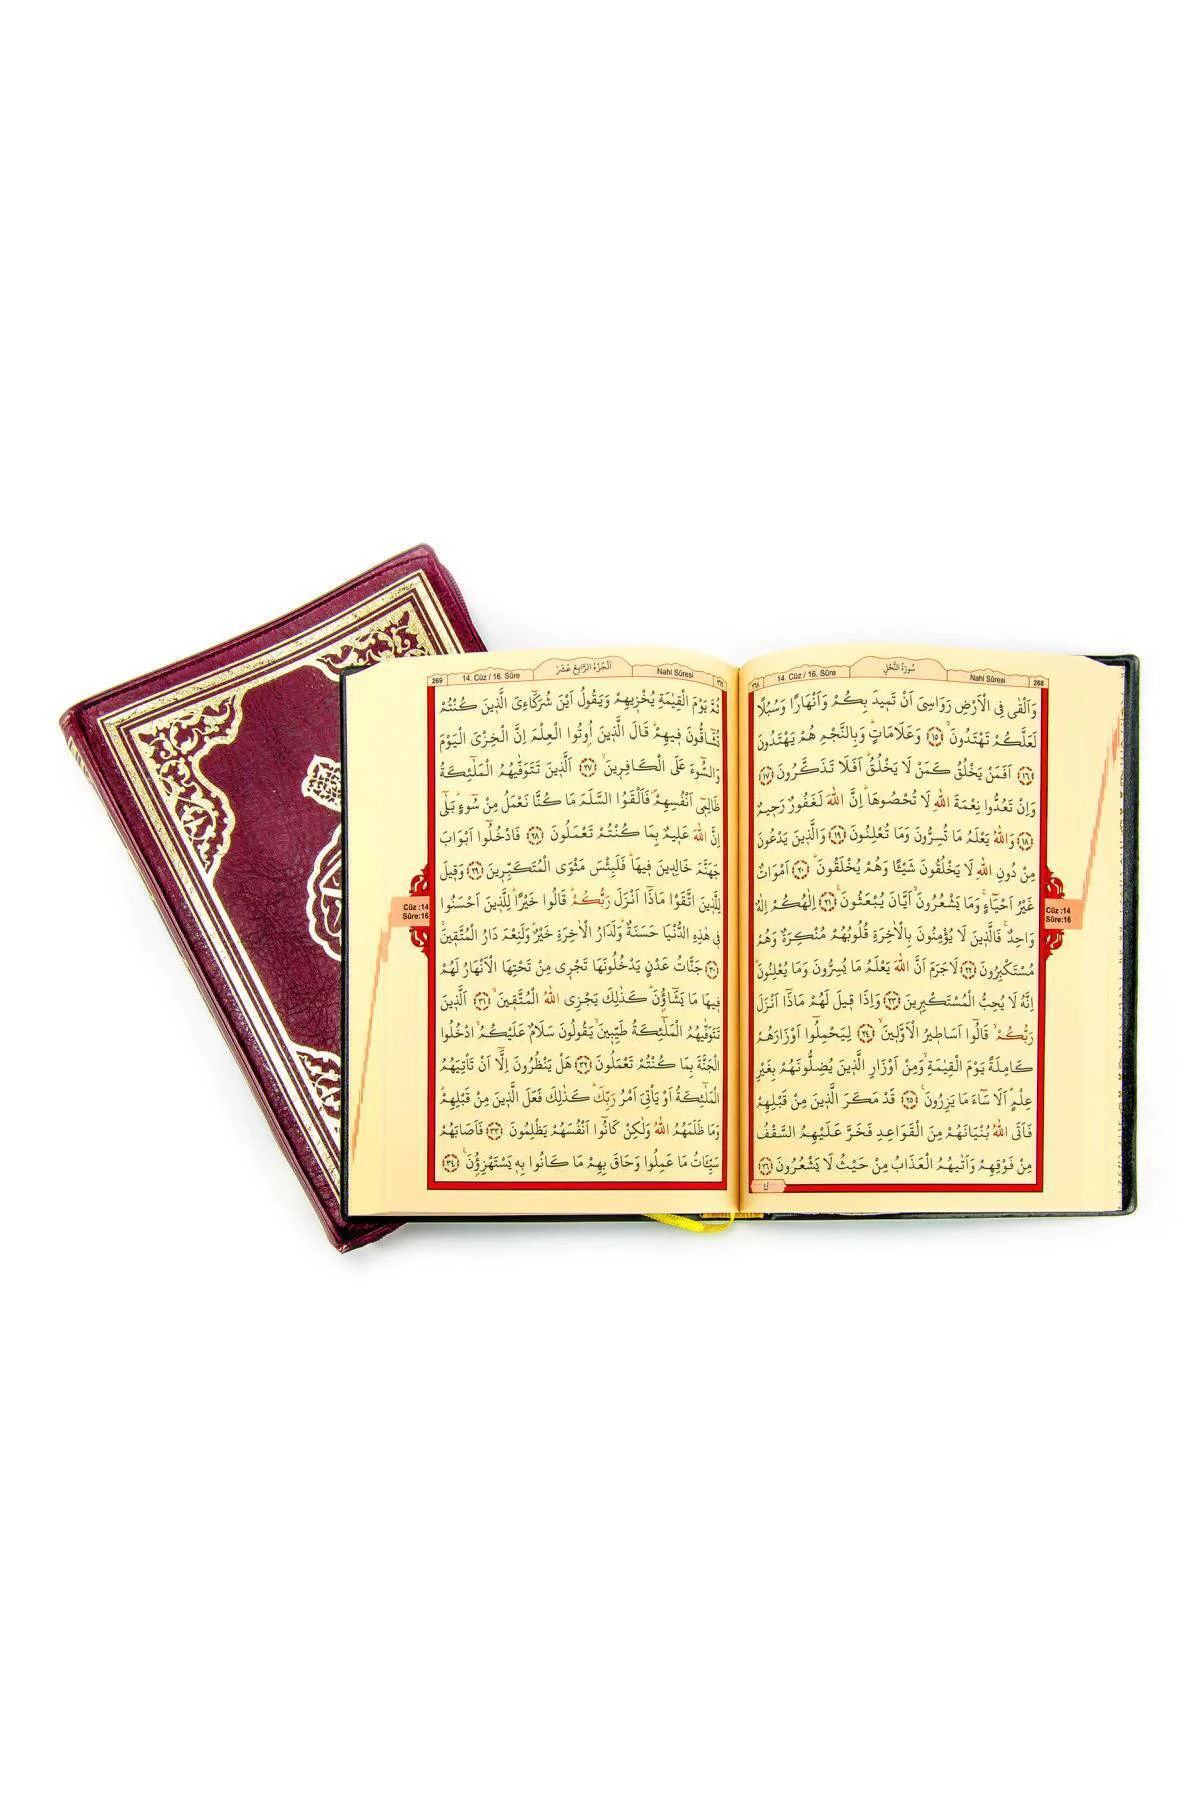 268
Nahl Sûresi
سُورَةُ النَّحْلِ
14. Cüz / 16. Sûre
٢٦٨
وَاَلْقٰى فِى الْاَرْضِ رَوَاسِىَ اَنْ تَمٖيدَ بِكُمْ وَاَنْهَارًا وَسُبُلًا
لَعَلَّكُمْ تَهْتَدُونَۙ ﴿١٥﴾ وَعَلَامَاتٍؕ وَبِالنَّجْمِ هُمْ يَهْتَدُونَ
﴿١٦﴾ اَفَمَنْ يَخْلُقُ كَمَنْ لَا يَخْلُقُؕ اَفَلَا تَذَكَّرُونَ ﴿١٧﴾
وَاِنْ تَعُدُّوا نِعْمَةَ اللّٰهِ لَا تُحْصُوهَاؕ اِنَّ اللّٰهَ لَغَفُورٌ رَحٖيمٌ
﴿١٨﴾ وَاللّٰهُ يَعْلَمُ مَا تُسِرُّونَ وَمَا تُعْلِنُونَ ﴿١٩﴾ وَالَّذٖينَ يَدْعُونَ
مِنْ دُونِ اللّٰهِ لَا يَخْلُقُونَ شَيْئًا وَهُمْ يُخْلَقُونَؕ ﴿٢٠﴾ اَمْوَاتٌ
غَيْرُ اَحْيَٓاءٍۚ وَمَا يَشْعُرُونَۙ اَيَّانَ يُبْعَثُونَ۟ ﴿٢١﴾ اِلٰهُكُمْ اِلٰهٌ
وَاحِدٌۚ فَالَّذٖينَ لَا يُؤْمِنُونَ بِالْاٰخِرَةِ قُلُوبُهُمْ مُنْكِرَةٌ وَهُمْ
مُسْتَكْبِرُونَ ﴿٢٢﴾ لَاجَرَمَ اَنَّ اللّٰهَ يَعْلَمُ مَا يُسِرُّونَ وَمَا يُعْلِنُونَؕ
اِنَّهُ لَا يُحِبُّ الْمُسْتَكْبِرٖينَ ﴿٢٣﴾ وَاِذَا قٖيلَ لَهُمْ مَاذَٓا اَنْزَلَ
رَبُّكُمْۙ قَالُٓوا اَسَاطٖيرُ الْاَوَّلٖينَۙ ﴿٢٤﴾ لِيَحْمِلُٓوا اَوْزَارَهُمْ
كَامِلَةً يَوْمَ الْقِيٰمَةِۙ وَمِنْ اَوْزَارِ الَّذٖينَ يُضِلُّونَهُمْ بِغَيْرِ
عِلْمٍؕ اَلَا سَٓاءَ مَا يَزِرُونَ۟ ﴿٢٥﴾ قَدْ مَكَرَ الَّذٖينَ مِنْ قَبْلِهِمْ
فَاَتَى اللّٰهُ بُنْيَانَهُمْ مِنَ الْقَوَاعِدِ فَخَرَّ عَلَيْهِمُ السَّقْفُ
مِنْ فَوْقِهِمْ وَاَتٰيهُمُ الْعَذَابُ مِنْ حَيْثُ لَا يَشْعُرُونَ ﴿٢٦﴾
Cüz :14
Sûre:16
Nahl Sûresi
اَلْجُزْءُ الرَّابِعَ عَشَرَ
14. Cüz / 16. Sûre
269
ثُمَّ يَوْمَ الْقِيٰمَةِ يُخْزٖيهِمْ وَيَقُولُ اَيْنَ شُرَكَٓاءِىَ الَّذٖينَ كُنْتُمْ
تُشَٓاقُّونَ فٖيهِمْؕ قَالَ الَّذٖينَ اُوتُوا الْعِلْمَ اِنَّ الْخِزْىَ الْيَوْمَ
وَالسُّٓوءَ عَلَى الْكَافِرٖينَۙ ﴿٢٧﴾ اَلَّذٖينَ تَتَوَفّٰيهُمُ الْمَلٰٓئِكَةُ
ظَالِمٖٓى اَنْفُسِهِمْࣕ فَاَلْقَوُا السَّلَمَ مَا كُنَّا نَعْمَلُ مِنْ سُٓوءٍؕ بَلٰٓى
اِنَّ اللّٰهَ عَلٖيمٌ بِمَا كُنْتُمْ تَعْمَلُونَ ﴿٢٨﴾ فَادْخُلُٓوا اَبْوَابَ
جَهَنَّمَ خَالِدٖينَ فٖيهَاؕ فَلَبِئْسَ مَثْوَى الْمُتَكَبِّرٖينَ ﴿٢٩﴾ وَقٖيلَ
لِلَّذٖينَ اتَّقَوْا مَاذَٓا اَنْزَلَ رَبُّكُمْؕ قَالُوا خَيْرًاؕ لِلَّذٖينَ اَحْسَنُوا
فٖى هٰذِهِ الدُّنْيَا حَسَنَةٌؕ وَلَدَارُ الْاٰخِرَةِ خَيْرٌؕ وَلَنِعْمَ دَارُ الْمُتَّقٖينَۙ
﴿٣٠﴾ جَنَّاتُ عَدْنٍ يَدْخُلُونَهَا تَجْرٖى مِنْ تَحْتِهَا الْاَنْهَارُ لَهُمْ
فٖيهَا مَا يَشَٓاؤُ۫نَؕ كَذٰلِكَ يَجْزِى اللّٰهُ الْمُتَّقٖينَۙ ﴿٣١﴾ اَلَّذٖينَ
تَتَوَفّٰيهُمُ الْمَلٰٓئِكَةُ طَيِّبٖينَۙ يَقُولُونَ سَلَامٌ عَلَيْكُمُۙ ادْخُلُوا
الْجَنَّةَ بِمَا كُنْتُمْ تَعْمَلُونَ ﴿٣٢﴾ هَلْ يَنْظُرُونَ اِلَّٓا اَنْ تَاْتِيَهُمُ
الْمَلٰٓئِكَةُ اَوْ يَاْتِىَ اَمْرُ رَبِّكَؕ كَذٰلِكَ فَعَلَ الَّذٖينَ مِنْ قَبْلِهِمْؕ
وَمَا ظَلَمَهُمُ اللّٰهُ وَلٰكِنْ كَانُٓوا اَنْفُسَهُمْ يَظْلِمُونَ ﴿٣٣﴾ فَاَصَابَهُمْ
سَيِّـَٔاتُ مَا عَمِلُوا وَحَاقَ بِهِمْ مَا كَانُوا بِهٖ يَسْتَهْزِؤُ۫نَ۟ ﴿٣٤﴾
Cüz :14
Sûre:16